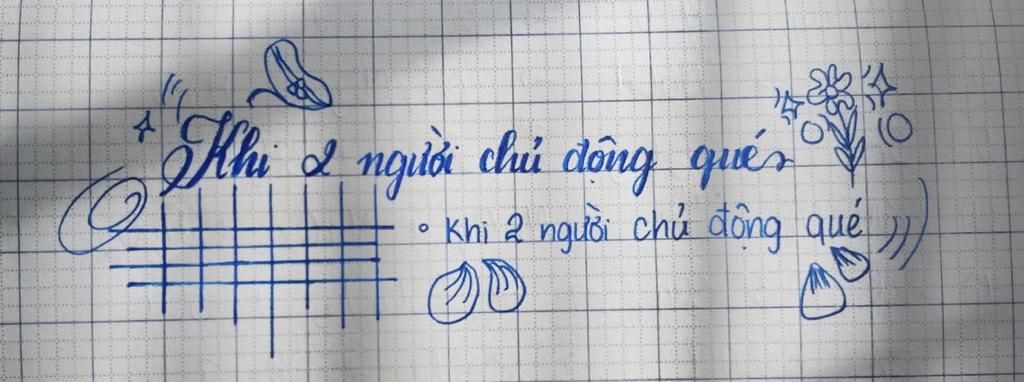 Khi 2 người chủ động qué
Khi 2 người chủ động qué